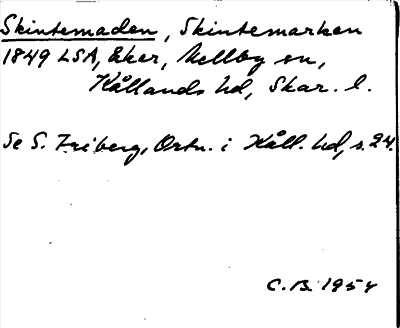 Skintemaden, Skintemarken
1849 LSA, Eker, Mellby sn,
Kållands hd, Skar. l.
Se S. Friberg, Ortn. i Kåll. hd, s. 24.
C.B. 1954